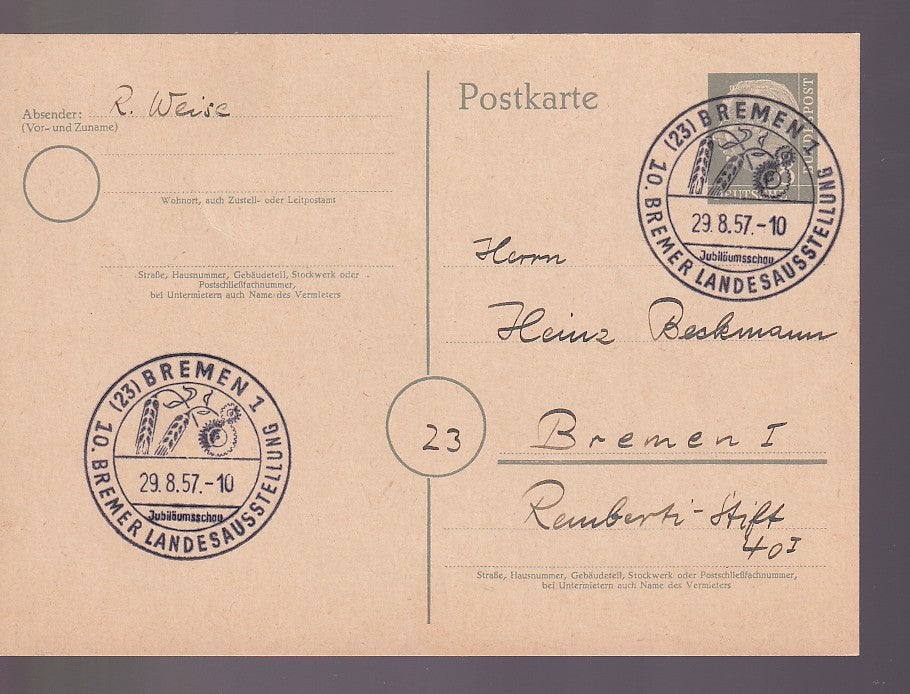 Absender: R. Weise
(Vor- und Zuname)
Wohnort, auch Zustell- oder Leitpostamt
Straße, Hausnummer, Gebäudeteil, Stockwerk oder
Postschließfachnummer,
bei Untermietern auch Name des Vermieters
(23) BREMEN 1
29.8.57.-10
Jubiläumsschau
10. BREMER LANDESAUSSTELLUNG
Postkarte
(23) BREMEN 1
29.8.57.-10
Jubiläumsschau
10. BREMER LANDESAUSSTELLUNG
Herrn
Heinz Beskmann
23
Bremen I
Remberti-Stift
40 I
Straße, Hausnummer, Gebäudeteil, Stockwerk oder Postschließfachnummer,
bei Untermietern auch Name des Vermieters